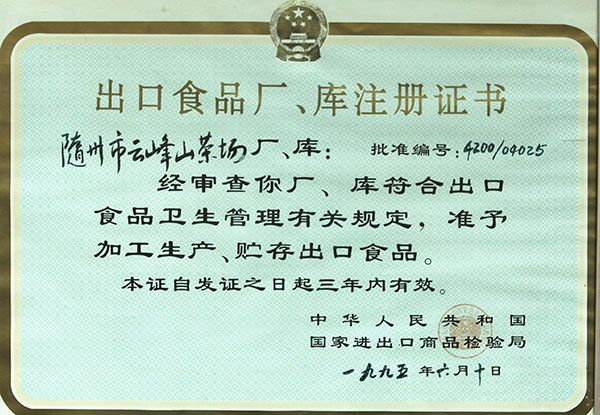 出口食品厂、库注册证书
随州市云峰山茶场厂、库: 批准编号:4200/04025
经审查你厂、库符合出口
食品卫生管理有关规定，准予
加工生产、贮存出口食品。
本证自发证之日起三年内有效。
中华人民共和国
国家进出口商品检验局
一九九五年六月十日